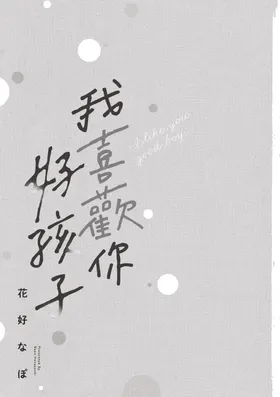 我喜歡你
好孩子
I like you
good boy.
花好なぼ